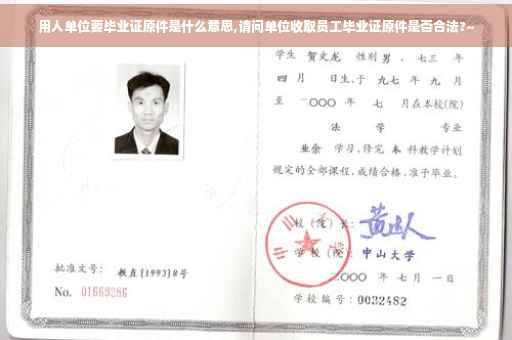 用人单位要毕业证原件是什么意思,请问单位收取员工毕业证原件是否合法?~
学生 贺文龙 性别 男 、七三 年
四 月 日生,于 九七 年 九 月
至 二〇〇〇 年 七 月在本校(院)
法 学 专业
业余 学习,修完 本 科教学计划
规定的全部课程,成绩合格,准予毕业。
校(院)长:
学 校(院): 中山大学
二〇〇〇 年 七 月 一 日
学校编号: 0032482
批准文号: 教直[1993]8号
No. 01669286